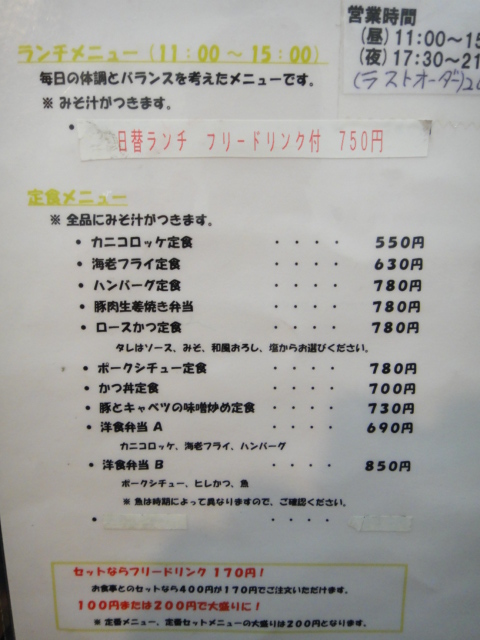 営業時間
(昼)11:00～15
(夜)17:30～21
(ラストオーダー)20
ランチメニュー(11:00～15:00)
毎日の体調とバランスを考えたメニューです。
※ みそ汁がつきます。
・日替ランチ フリードリンク付 750円
定食メニュー
※ 全品にみそ汁がつきます。
・カニコロッケ定食 ・・・・ 550円
・海老フライ定食 ・・・・ 630円
・ハンバーグ定食 ・・・・ 780円
・豚肉生姜焼き弁当 ・・・・ 780円
・ロースかつ定食 ・・・・ 780円
タレはソース、みそ、和風おろし、塩からお選びください。
・ポークシチュー定食 ・・・・ 780円
・かつ丼定食 ・・・・ 700円
・豚とキャベツの味噌炒め定食 ・・・・ 730円
・洋食弁当 A ・・・・ 690円
カニコロッケ、海老フライ、ハンバーグ
・洋食弁当 B ・・・・ 850円
ポークシチュー、ヒレかつ、魚
※ 魚は時期によって異なりますので、ご確認ください。
・ ・・・・
セットならフリードリンク 170円!
お食事とのセットなら400円が170円でご注文いただけます。
100円または200円で大盛りに!
※ 定番メニュー、定番セットメニューの大盛りは200円となります。